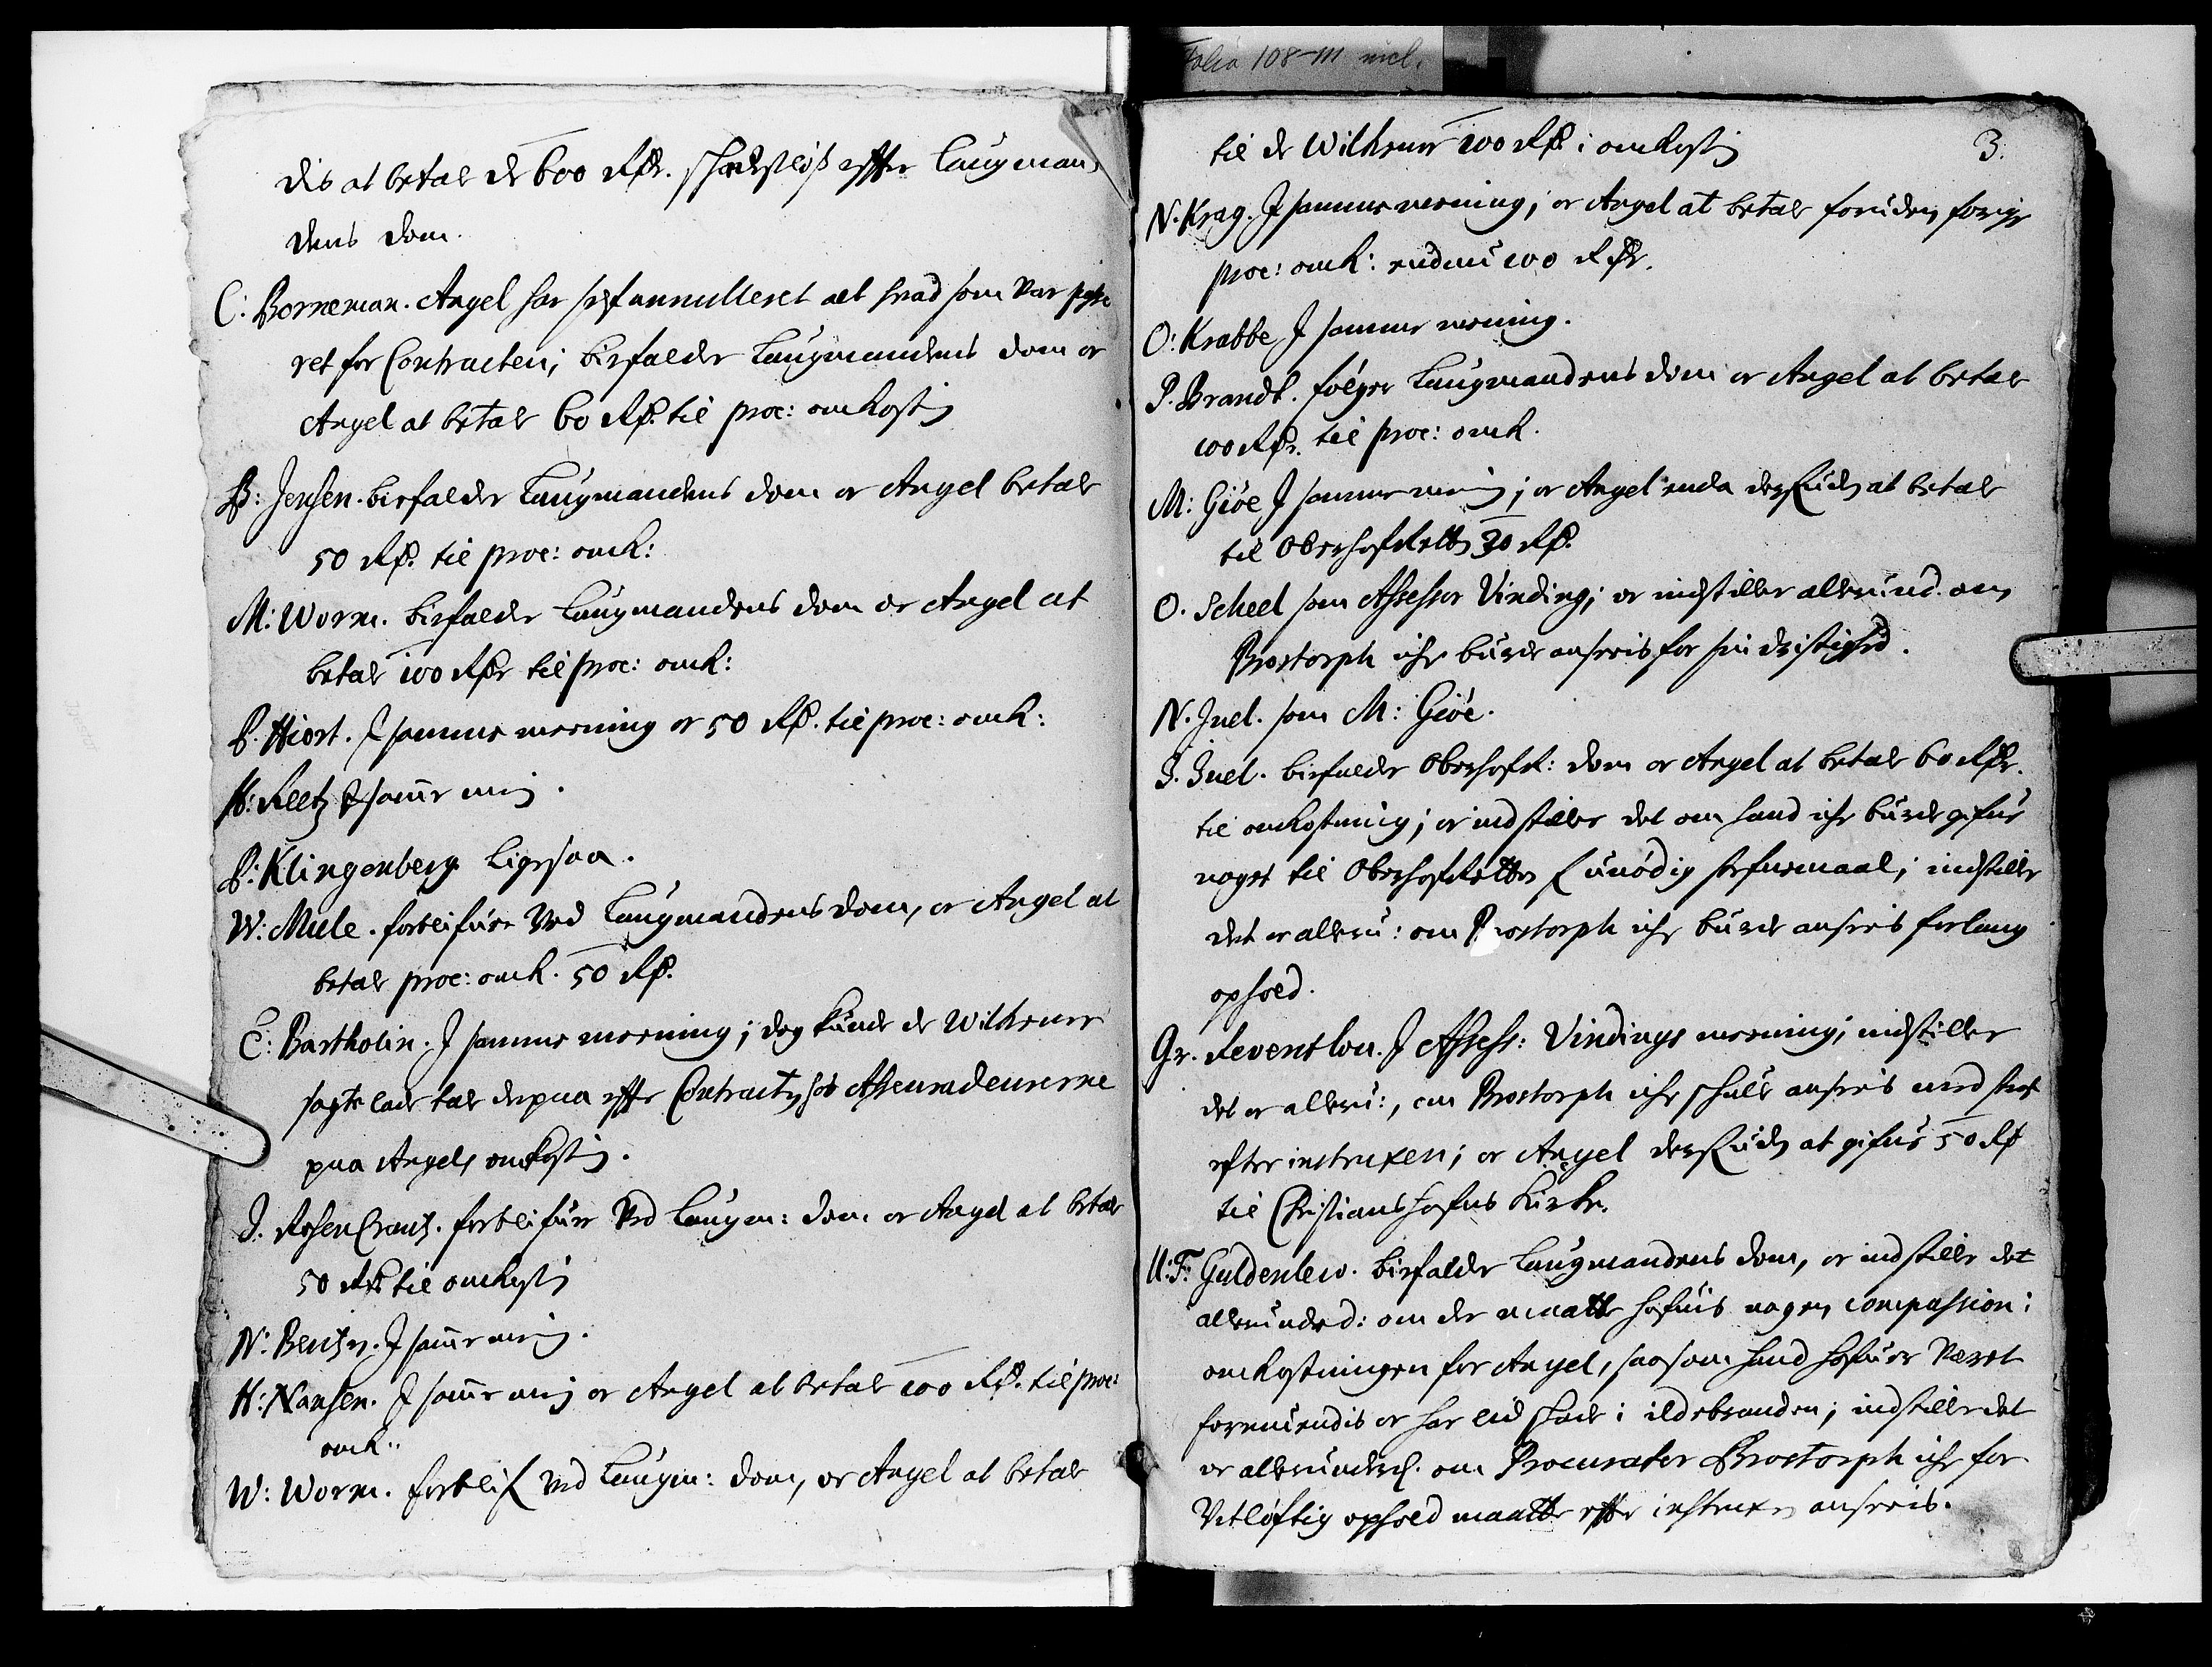 Folia 108-111 incl.
dis at betale de 600 Rdr. schadesløs effter Laugman-
dens dom.
C: Borneman. Angel har self annulleret alt hvad som var
ret for Contracten; biefalder Laugmandens dom oc
Angel at betale 60 Rd. til proc: omkostn
B: Jensen. biefalder Laugmandens dom oc Angel betale
50 Rd. til proc: omk:
M: Worm. biefalder Laugmandens dom oc Angel at
betale 100 Rdr til proc: omk:
P. Hiort. J samme meening oc 50 Rd. til proc: omk:
H: Reetz J samme men.
P: Klingenberg ligesaa.
W: Mule. forblifuer Ved Laugmandens dom, oc Angel at
betale proc: omk. 50 Rd.
C: Bartholin. J samme meening; dog kunde de Wilhemer
søgte lade tale derpaa effter Contracten hos Asseuradeurerne
paa Angels omkostn.
J. RosenCrantz. forblifuer Ved Laugm: dom oc Angel at betale
50 Rd til omkostn
N: Bentzen. J samme men.
H: Nansen. J samme men oc Angel at betale 100 Rd. til proc:
omk:
W: Worm. forblif Ved Laugm: dom, oc Angel at betale
3.
til de Wilhemer 100 Rd. i omkostn
N. Krag. J samme meening; oc Angel at betale foruden forige
proc: omk: endnu 100 Rdr.
O: Krabbe J samme meening.
P. Brandt. følger Laugmandens dom oc Angel at betale
100 Rdr. til proc: omk.
M: Giøe J samme men; oc Angel enda desuden at betale
til Oberhofretten 30 Rd.
O. Scheel som Assessor Vinding; oc indstiller allerund. om
Brostorph iche burde ansees for sin dristighed.
N. Juel. som M: Giøe.
J. Juel. biefalder Oberhofr: dom oc Angel at betale 60 Rdr.
til omkostning; oc indstiller det om hand iche burde gifue
noget til Oberhofretten f unødig stefnemaal; indstiller
det oc alleru: om Brostorph iche burde ansees for lang
ophold.
Gr. Reventlou. J Assess: Vindings meening; indstiller
det oc alleru:, om Brostorph iche schulle ansees med straf
efter instruxen; oc Angel desuden at gifue 50 Rd
til Christianshafns Kirke.
U: F: Guldenlew. biefalder Laugmandens dom, oc indstiller det
allerunded: om der maatte hafuis nogen compassion i
omkostningen for Angel, saasom hand hafuer Været
formuendis oc har lid schade i ildebranden; indstiller det
oc allerunderd. om Procurator Brostorph iche for
Vitløftig ophold maatte effter instruxen ansees.